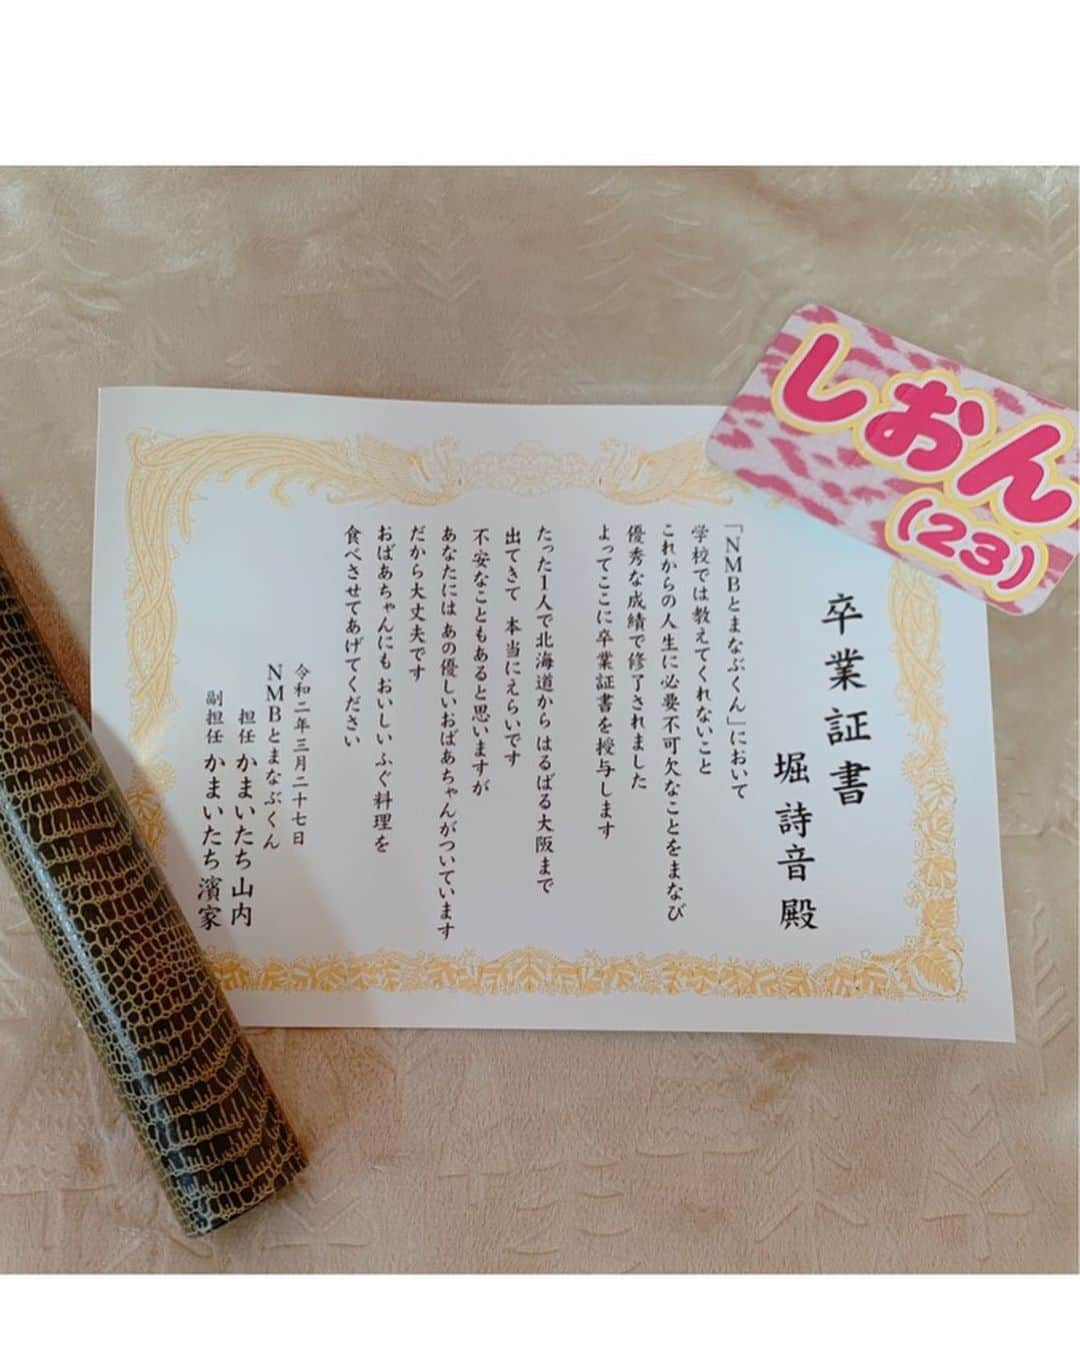 卒業証書
堀詩音殿
「NMBとまなぶくん」において
学校では教えてくれないこと
これからの人生に必要不可欠なことをまなび
優秀な成績で修了されました
よってここに卒業証書を授与します
たった1人で北海道から はるばる大阪まで
出てきて 本当にえらいです
不安なこともあると思いますが
あなたには あの優しいおばあちゃんがついています
だから大丈夫です
おばあちゃんにも おいしい ふぐ料理を
食べさせてあげてください
令和二年三月二十七日
NMBとまなぶくん
担任 かまいたち 山内
副担任 かまいたち 濱家
しおん
(23)